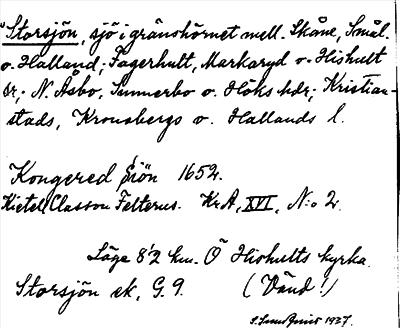 "Storsjön, sjö i gränshörnet mell. Skåne, Smål.
o. Halland, Fagerhult, Markaryd o. Hishult
sr; N. Åsbo, Sunnerbo o. Höks hdr; Kristian-
stads, Kronobergs o. Hallands l.
Kongered Siön 1652.
Kietel Classon Felterus. Kr.A, XVI, N:o 2.
Läge 8'2 km. Ö Hishults kyrka.
Storsjön ek, G.9. (Vänd!)
1937.